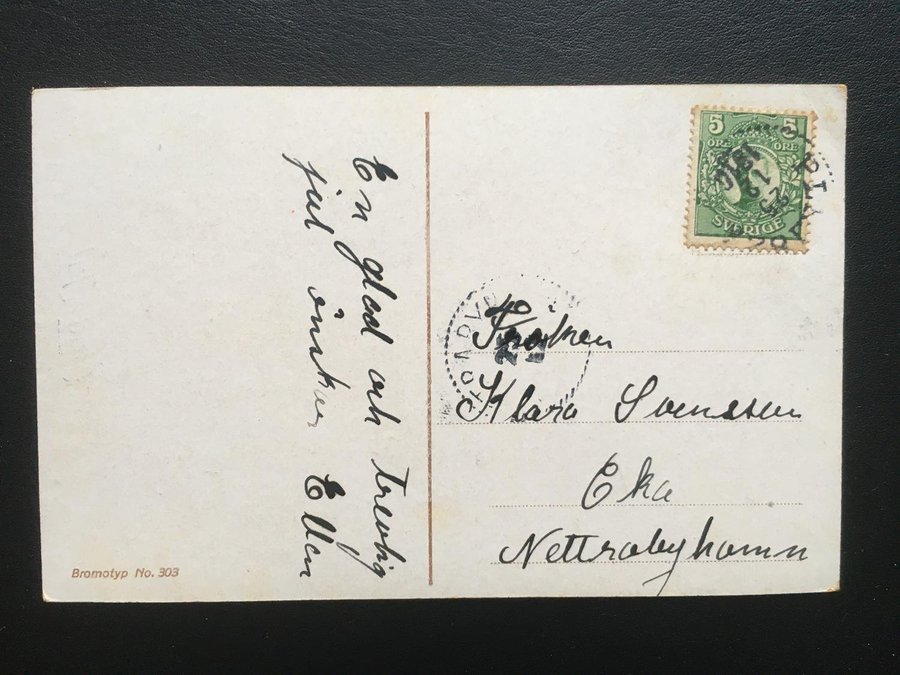 En glad och trevlig
jul önskar Ellen
Bromotyp No. 303
5 5
ÖRE ÖRE
SVERIGE
Fröken
Klara Svensson
Eka
Nettrabyhamn